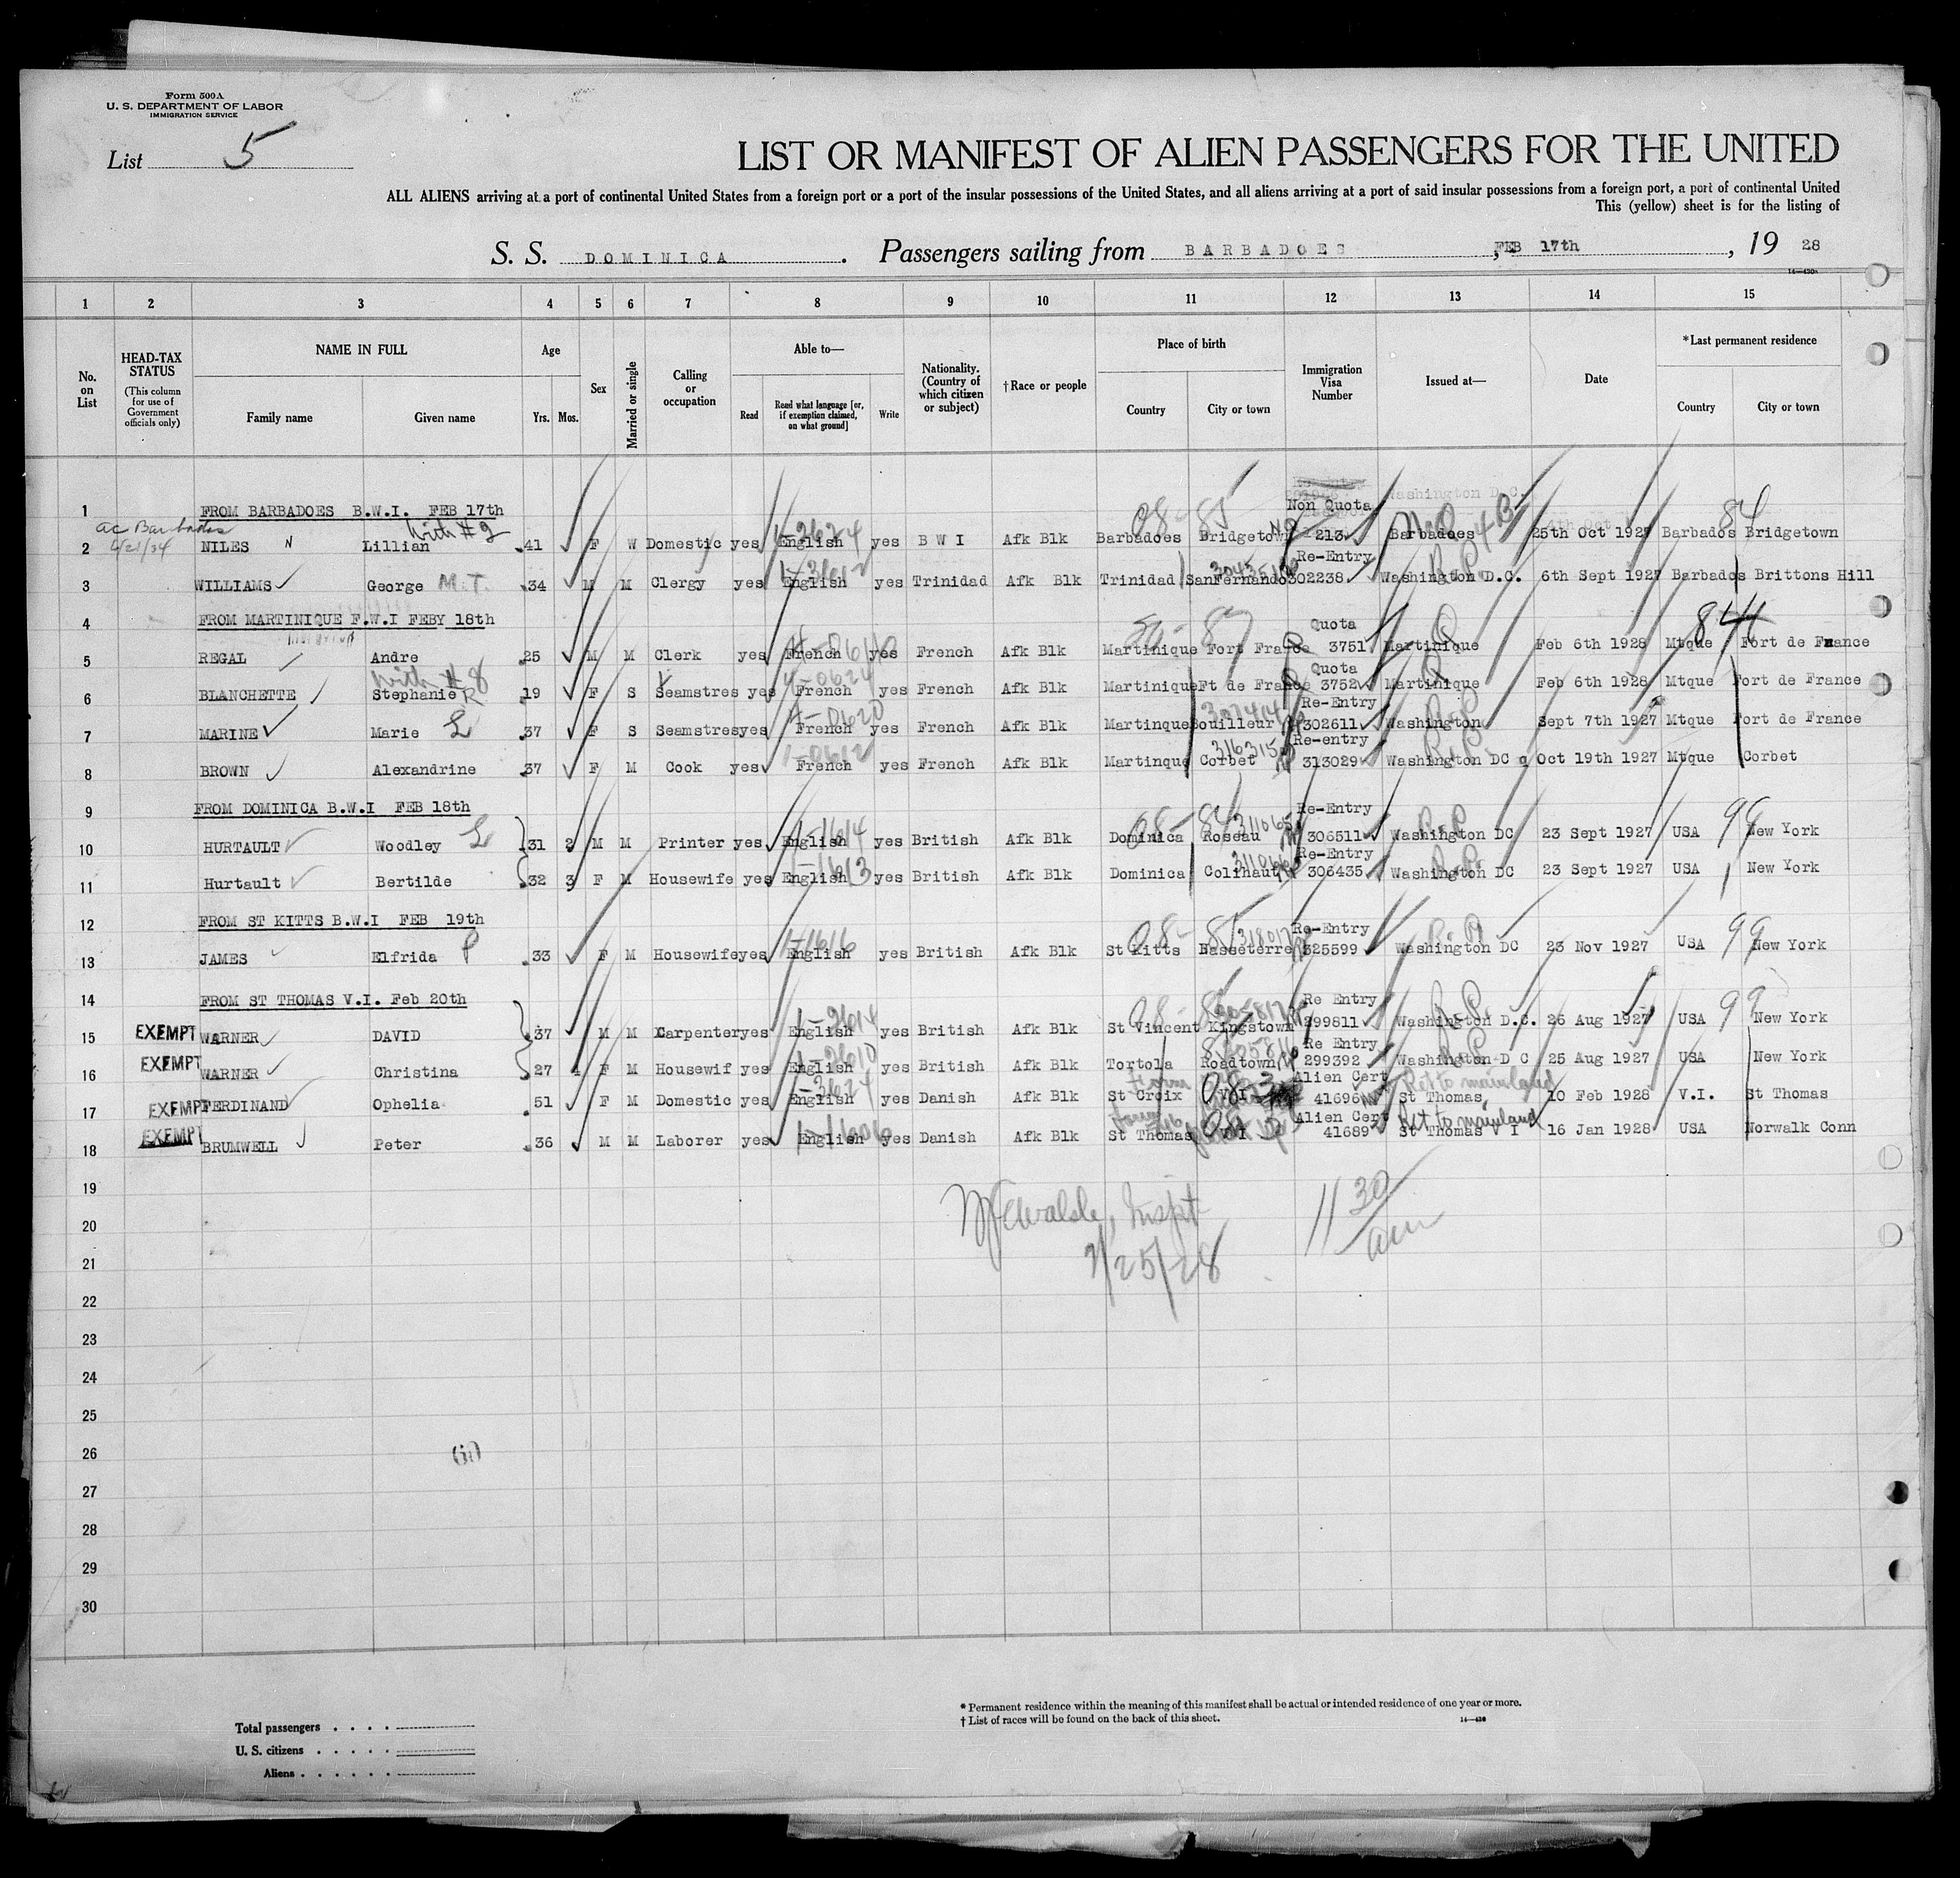 Form 500A
U. S. DEPARTMENT OF LABOR
IMMIGRATION SERVICE
List 5
LIST OR MANIFEST OF ALIEN PASSENGERS FOR THE UNITED
ALL ALIENS arriving at a port of continental United States from a foreign port or a port of the insular possessions of the United States, and all aliens arriving at a port of said insular possessions from a foreign port, a port of continental United
This (yellow) sheet is for the listing of
S. S. DOMINICA . Passengers sailing from BARBADOES , FEB 17th , 19 28
14—430
1 2 3 4 5 6 7 8 9 10 11 12 13 14 15
No. on List
HEAD-TAX STATUS (This column for use of Government officials only)
NAME IN FULL Family name Given name
Age Yrs. Mos.
Sex
Married or single
Calling or occupation
Able to— Read Read what language [or, if exemption claimed, on what ground] Write
Nationality. (Country of which citizen or subject)
†Race or people
Place of birth Country City or town
Immigration Visa Number
Issued at—
Date
*Last permanent residence Country City or town
1 FROM BARBADOES B.W.I. FEB 17th
ac Barbados with # 2 1-2624 08-85 Non Quota 84
2 NILES N Lillian 41 F W Domestic yes English yes B W I Afk Blk Barbadoes Bridgetown 213 Barbadoes 25th Oct 1927 Barbados Bridgetown
1-3612 Re-Entry
3 WILLIAMS George M.T. 34 M M Clergy yes English yes Trinidad Afk Blk Trinidad SanFernando 302238 Washington D.C. 6th Sept 1927 Barbados Brittons Hill
4 FROM MARTINIQUE F.W.I FEBY 18th
Quota 84
5 REGAL Andre 25 M M Clerk yes French yes French Afk Blk Martinique Fort France 3751 Martinique Feb 6th 1928 Mtque Fort de France
with # 8 4-0624 Quota
6 BLANCHETTE Stephanie R 19 F S Seamstres yes French yes French Afk Blk Martinique Ft de France 3752 Martinique Feb 6th 1928 Mtque Fort de France
4-0620 Re-Entry
7 MARINE Marie L 37 F S Seamstres yes French yes French Afk Blk Martinque Bouilleur 302611 Washington Sept 7th 1927 Mtque Fort de France
1-0612 316315 Re-entry R.P.
8 BROWN Alexandrine 37 F M Cook yes French yes French Afk Blk Martinque Corbet 313029 Washington DC Oct 19th 1927 Mtque Corbet
9 FROM DOMINICA B.W.I FEB 18th
1-1614 08-84 311065 Re-Entry R.P. 99
10 HURTAULT Woodley L 31 2 M M Printer yes English yes British Afk Blk Dominica Roseau 306511 Washington DC 23 Sept 1927 USA New York
1-1613 311066 Re-Entry R.P.
11 Hurtault Bertilde 32 3 F M Housewife yes English yes British Afk Blk Dominica Colihaut 306435 Washington DC 23 Sept 1927 USA New York
12 FROM ST KITTS B.W.I FEB 19th
1-1616 08-85 318017 Re-Entry R.P. 99
13 JAMES Elfrida P 33 F M Housewife yes English yes British Afk Blk St Kitts Basseterre 325599 Washington DC 23 Nov 1927 USA New York
14 FROM ST THOMAS V.I. Feb 20th
1-2614 Re Entry R.P. 99
15 EXEMPT WARNER DAVID 37 M M Carpenter yes English yes British Afk Blk St Vincent Kingstown 299811 Washington D.C. 26 Aug 1927 USA New York
1-2610 Re Entry R.P.
16 EXEMPT WARNER Christina 27 F M Housewif yes English yes British Afk Blk Tortola Roadtown 299392 Washington D C 25 Aug 1927 USA New York
1-3624 Alien Cert Ret to mainland
17 EXEMPT FERDINAND Ophelia 51 F M Domestic yes English yes Danish Afk Blk St Croix V I 41696 St Thomas 10 Feb 1928 V.I. St Thomas
1-1606 Alien Cert Ret to mainland
18 EXEMPT BRUMWELL Peter 36 M M Laborer yes English yes Danish Afk Blk St Thomas V I 41689 St Thomas V I 16 Jan 1928 USA Norwalk Conn
19
Inspt 11 30 am
20
2/25/28
21
22
23
24
25
26
27
28
29
30
* Permanent residence within the meaning of this manifest shall be actual or intended residence of one year or more.
† List of races will be found on the back of this sheet. 14—430
Total passengers
U. S. citizens
Aliens